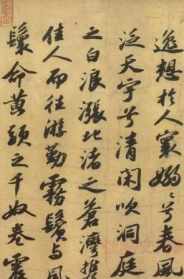 逸想於人寰嫋〻兮春風
泛天宇兮清閑吹洞庭
之白浪漲北渚之蒼灣攜
佳人而往游勤霧鬢與風
鬟命黃頭之千奴卷震